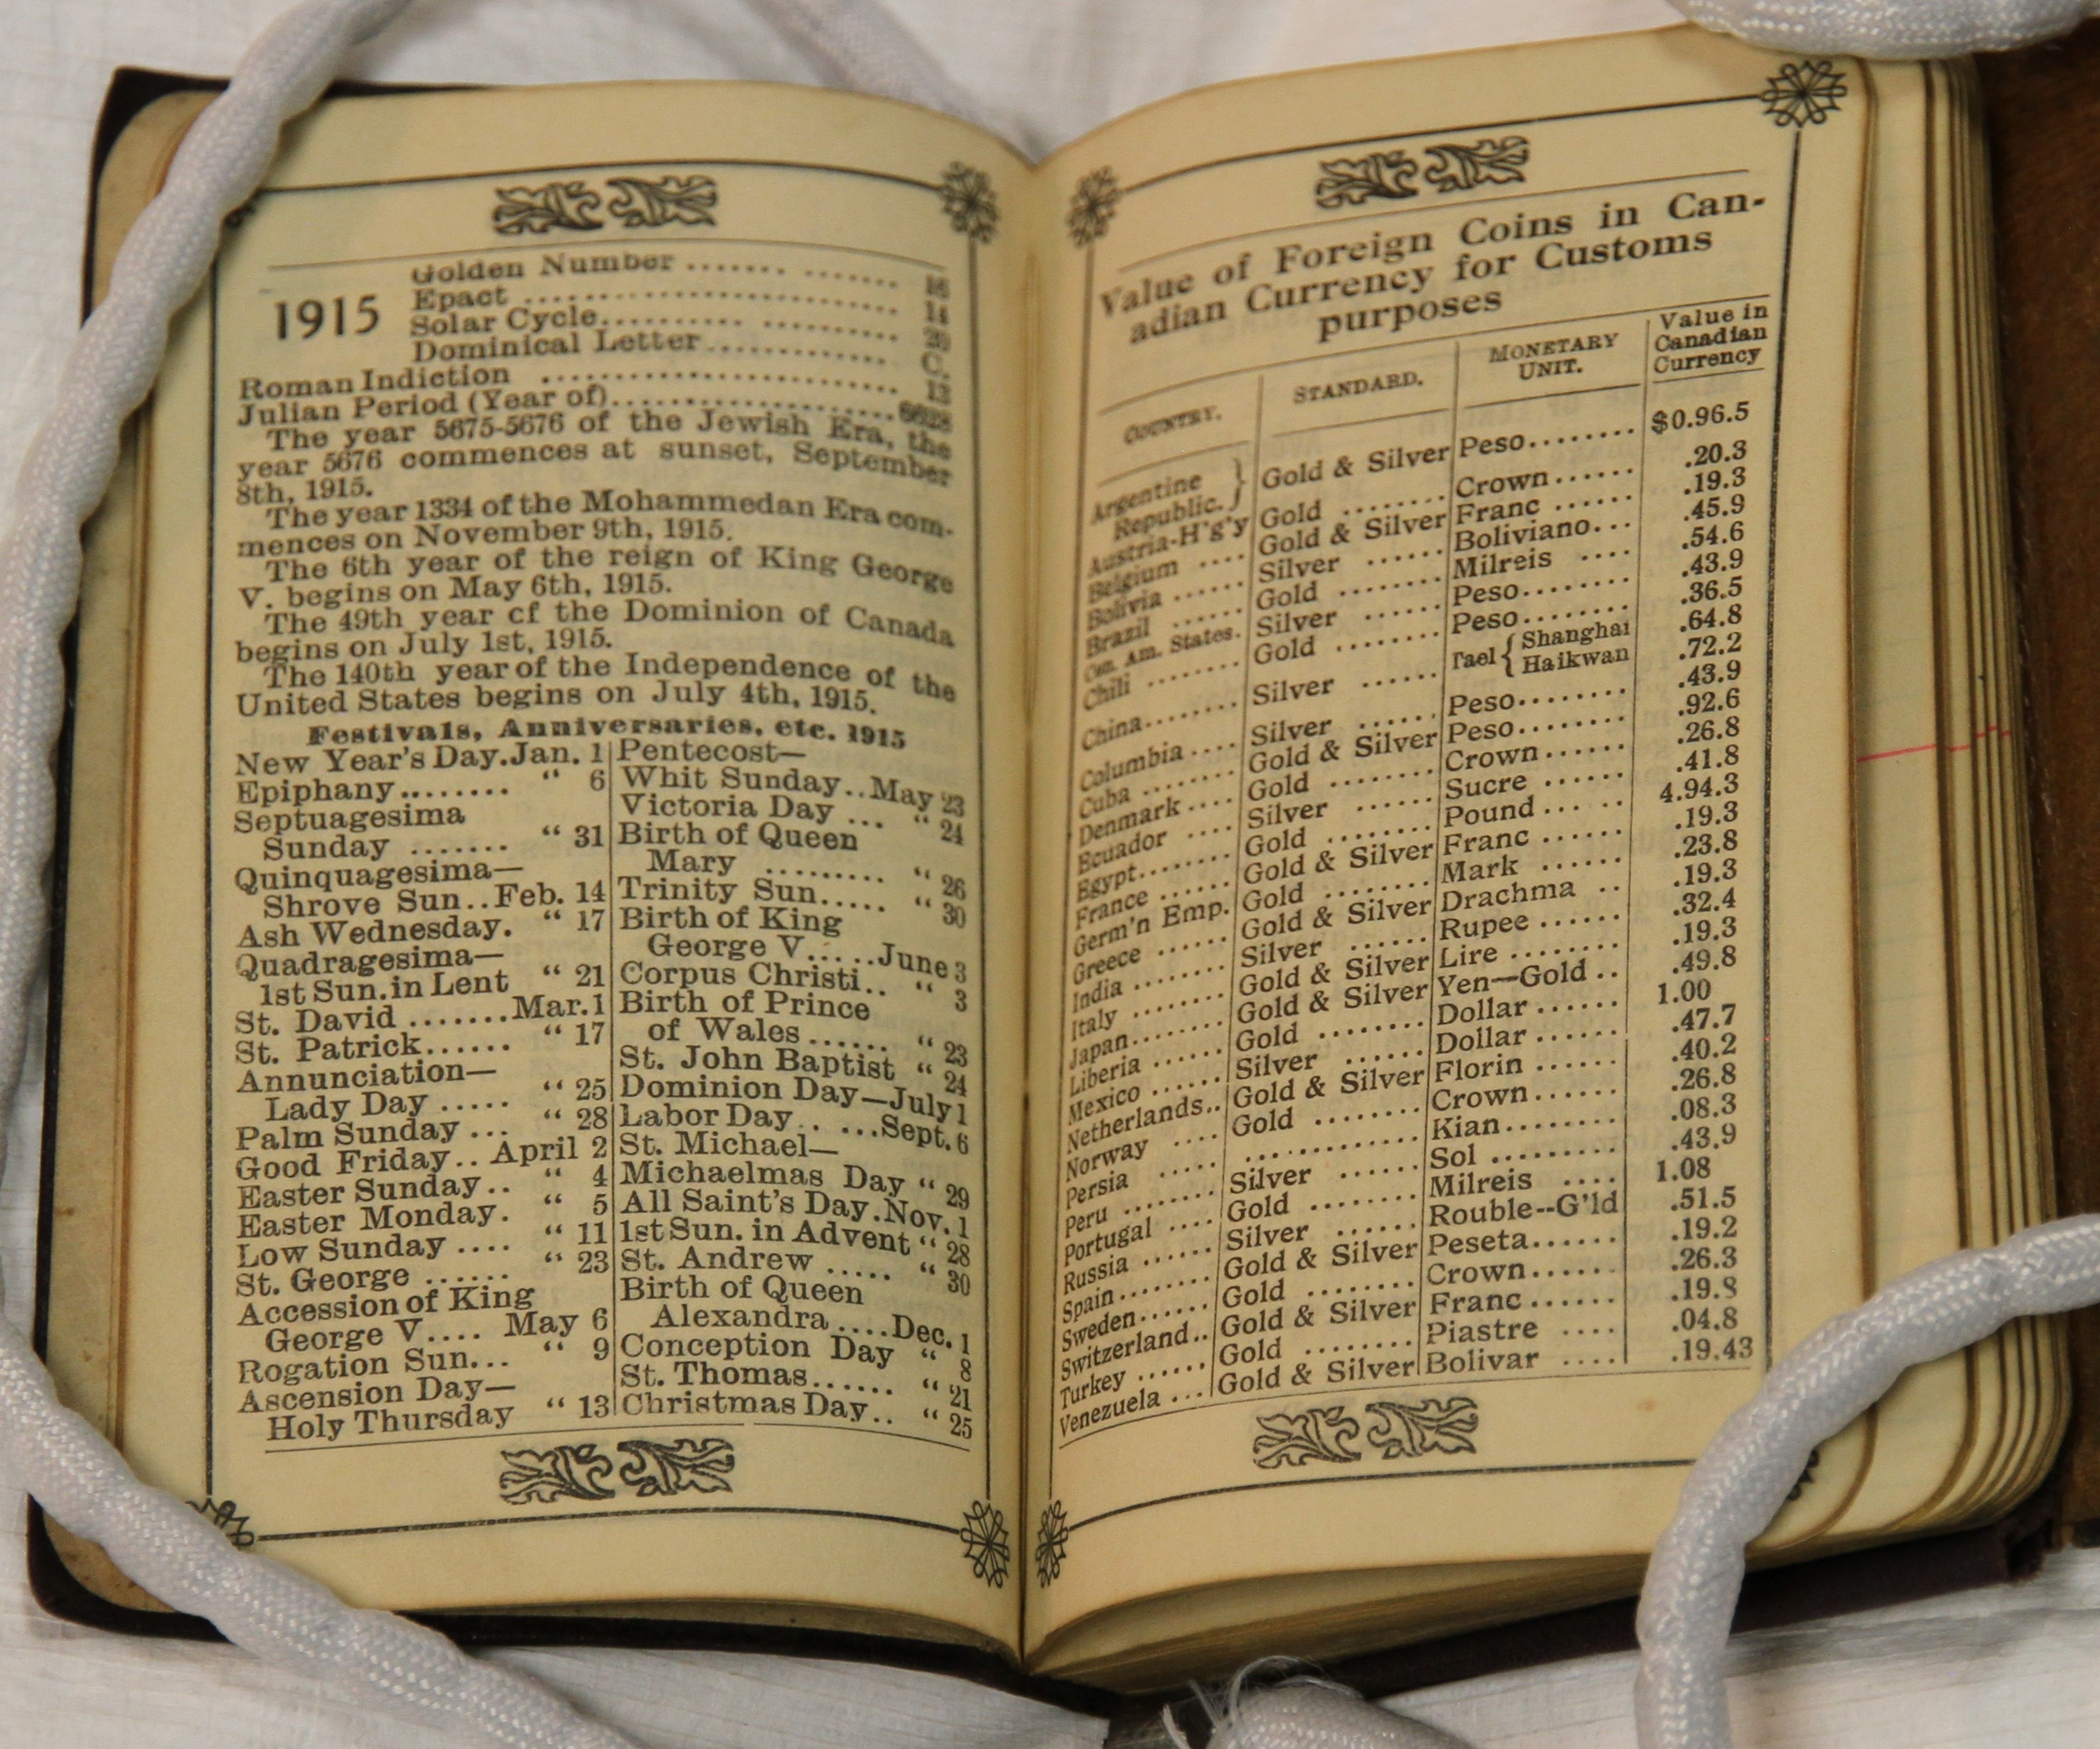 1915
Golden Number ....... ....... 16
Epact ........................... 14
Solar Cycle.......... .......... 20
Dominical Letter.............. C.
Roman Indiction .......................... 13
Julian Period (Year of).................... 6628
The year 5675-5676 of the Jewish Era, the
year 5676 commences at sunset, September
8th, 1915.
The year 1334 of the Mohammedan Era com-
mences on November 9th, 1915.
The 6th year of the reign of King George
V. begins on May 6th, 1915.
The 49th year cf the Dominion of Canada
begins on July 1st, 1915.
The 140th year of the Independence of the
United States begins on July 4th, 1915.
Festivals, Anniversaries, etc. 1915
New Year's Day.Jan. 1
Epiphany........ “ 6
Septuagesima
Sunday ....... “ 31
Quinquagesima—
Shrove Sun..Feb. 14
Ash Wednesday. “ 17
Quadragesima—
1st Sun.in Lent “ 21
St. David .......Mar.1
St. Patrick...... “ 17
Annunciation—
Lady Day ..... “ 25
Palm Sunday ... “ 28
Good Friday.. April 2
Easter Sunday.. “ 4
Easter Monday. “ 5
Low Sunday .... “ 11
St. George ...... “ 23
Accession of King
George V.... May 6
Rogation Sun... “ 9
Ascension Day—
Holy Thursday “ 13
Pentecost—
Whit Sunday..May 23
Victoria Day ... “ 24
Birth of Queen
Mary ......... “ 26
Trinity Sun..... “ 30
Birth of King
George V.....June 3
Corpus Christi.. “ 3
Birth of Prince
of Wales...... “ 23
St. John Baptist “ 24
Dominion Day—July 1
Labor Day.. ...Sept. 6
St. Michael—
Michaelmas Day “ 29
All Saint's Day.Nov. 1
1st Sun. in Advent “ 28
St. Andrew ..... “ 30
Birth of Queen
Alexandra ....Dec. 1
Conception Day “ 8
St. Thomas...... “ 21
Christmas Day.. “ 25
Value of Foreign Coins in Can-
adian Currency for Customs
purposes
COUNTRY. STANDARD. MONETARY UNIT. Value in Canadian Currency
Argentine Republic. } Gold & Silver Peso........ $0.96.5
Austria-H'g'y Gold ........ Crown...... .20.3
Belgium .... Gold & Silver Franc ...... .19.3
Bolivia ...... Silver ...... Boliviano... .45.9
Brazil ...... Gold ........ Milreis .... .54.6
Cen. Am. States. Silver ...... Peso........ .43.9
Chili ........ Gold ........ Peso........ .36.5
China........ Silver ...... Tael { Shanghai .64.8
Haikwan .72.2
Columbia.... Silver ...... Peso........ .43.9
Cuba ........ Gold & Silver Peso........ .92.6
Denmark.... Gold ........ Crown...... .26.8
Ecuador .... Silver ...... Sucre ...... .41.8
Egypt....... Gold ........ Pound ... .. 4.94.3
France ...... Gold & Silver Franc ...... .19.3
Germ'n Emp. Gold ........ Mark ...... .23.8
Greece ...... Gold & Silver Drachma .. .19.3
India ........ Silver ...... Rupee ...... .32.4
Italy ........ Gold & Silver Lire ........ .19.3
Japan........ Gold & Silver Yen—Gold .. .49.8
Liberia ...... Gold ........ Dollar ...... 1.00
Mexico ...... Silver ...... Dollar ...... .47.7
Netherlands.. Gold & Silver Florin ...... .40.2
Norway .... Gold ........ Crown...... .26.8
Persia ..... ............. Kian........ .08.3
Peru ........ Silver ...... Sol ......... .43.9
Portugal .... Gold ........ Milreis .... 1.08
Russia ...... Silver ...... Rouble--G'ld .51.5
Spain........ Gold & Silver Peseta...... .19.2
Sweden...... Gold ........ Crown...... .26.3
Switzerland.. Gold & Silver Franc...... .19.8
Turkey ...... Gold ........ Piastre .... .04.8
Venezuela ... Gold & Silver Bolivar .... .19.43